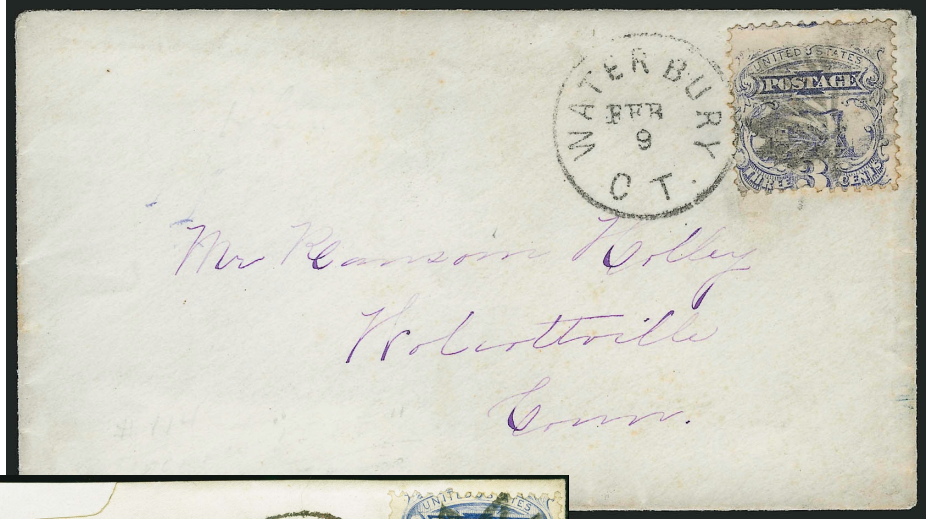 WATERBURY
FEB
9
CT.
UNITED STATES
POSTAGE
THREE 3 CENTS
Mr Ransom Holley
Wolcottville
Conn.
UNITED STATES